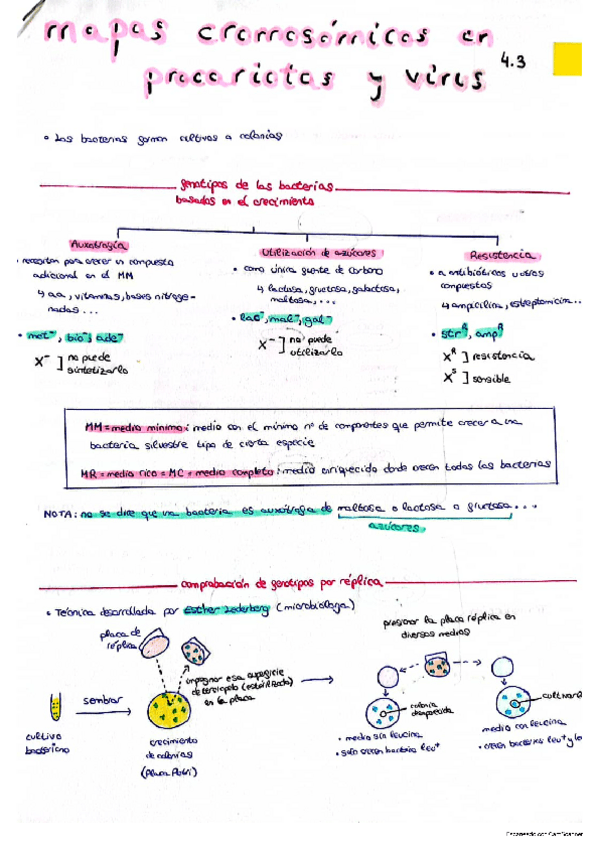 mapas cromosómicos en
procariotas y virus 4.3
• Las bacterias forman cultivos o colonias
genotipos de las bacterias
basados en el crecimiento
Auxotrofía
• necesitan para crecer un compuesto
adicional en el MM
↳ aa, vitaminas, bases nitroge-
nadas...
• met⁻, bio⁻, ade⁻
X⁻ ] no puede
sintetizarlo
Utilización de azúcares
• como única fuente de carbono
↳ lactosa, glucosa, galactosa,
maltosa,...
• lac⁻, mal⁻, gal⁻
X⁻ ] no puede
utilizarlo
Resistencia
• a antibióticos u otros
compuestos
↳ ampicilina, estreptomicin...
• strᴿ, ampᴿ
Xᴿ ] resistencia
Xˢ ] sensible
MM = medio mínimo: medio con el mínimo nº de componentes que permite crecer a una
bacteria silvestre tipo de cierta especie
MR = medio rico = MC = medio completo: medio enriquecido donde crecen todas las bacterias
NOTA: no se dice que una bacteria es auxótrofa de maltosa o lactosa o glucosa...
azúcares
comprobación de genotipos por réplica
• Técnica desarrollada por Esther Lederberg (microbióloga)
placa de
réplica
impregnar esa superficie
de terciopelo (esterilizado)
en la placa
presionar la placa réplica en
diversos medios
sembrar
cultivo
bacteriano
crecimiento
de colonias
(placa Petri)
colonia
desaparecida
• medio sin leucina
• solo crecen bacteria leu⁺
cultivará
medio con leucina
• crecen bacterias leu⁺ y le
Escaneado con CamScanner